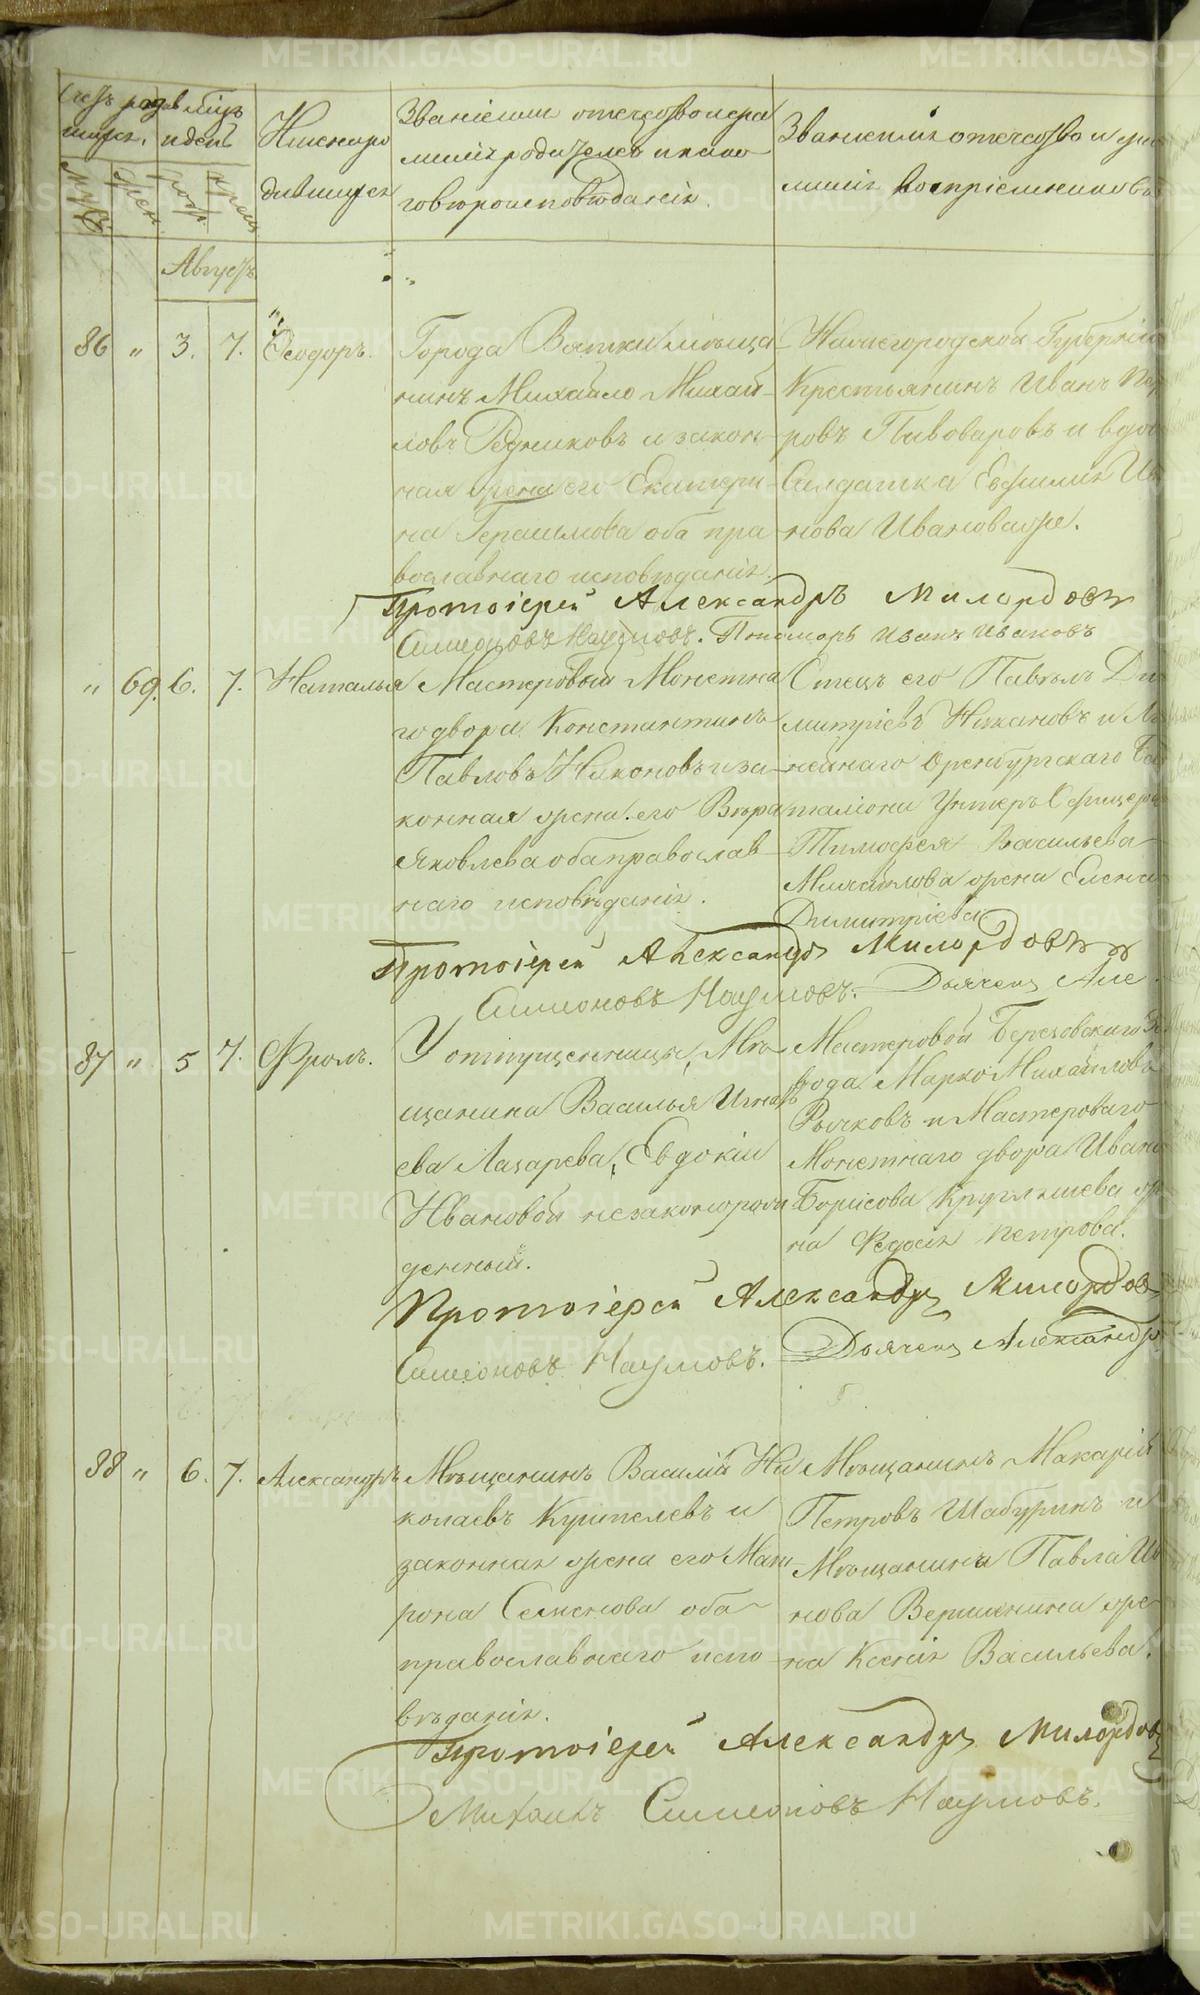 METRIKI.GASO-URAL.RU
Счетъ родив
шихся.
Мѣцъ
и день
Имена ро
дившихся
Званіе имя отечество и фа
милія родителей и како
го вѣроисповѣданія.
Званіе имя отчество и фа
милія воспріемниковъ
Муж.
Жен.
рожд.
крещ.
Августъ
86 " 3. 7. Ѳеодоръ.
Города Вятки мѣща
нинъ Михайло Михай
ловъ Редниковъ и закон
ная жена его Екатери
на Герасимова оба пра
вославнаго исповѣданія.
Нижегородской Губерніи
Крестьянинъ Иванъ
ровъ Пивоваровъ и вдо
Салдатка Евфимія Ив
нова Ивановаже.
Протоіерей Александръ Милордовъ
Симеоновъ Наумовъ. Пономарь Иванъ Ивановъ
" 69. 6. 7. Наталья
Мастеровый Монетна
го двора Константинъ
Павловъ Никоновъ и за
конная жена его Вѣра
Яковлева оба православ
наго исповѣданія.
Отецъ его Павелъ Ди
митріевъ Никановъ и Ли
нейнаго Оренбургскаго Ба
таліона Унтеръ Офицера
Тимофея Васильева
Михайлова жена Елена
Димитріева
Протоіерей Александръ Милордовъ
Симеоновъ Наумовъ. Дьячекъ Але
87 " 5 7. Фролъ.
У отпущенницы, Мѣ
щанина Василья Игнать
ева Лазарева, Евдокіи
Ивановой незаконорож
денный.
Мастеровой Березовскаго За
вода Марко Михайловъ
Рычковъ и Мастероваго
Монетнаго двора Ивана
Борисова Круглышева же
на Федосья Петрова.
Протоіерей Александръ Милордовъ
Симеоновъ Наумовъ. Дьячекъ Александръ
88 " 6. 7. Александръ
Мѣщанинъ Василій Ни
колаевъ Кушпелевъ и
законная жена его Мат
рона Семенова оба
православнаго испо
вѣданія.
Мѣщанинъ Макарій
Петровъ Шабуринъ и
Мѣщанина Павла Ив
нова Вершинина же
на Ксенія Васильева.
Протоіерей Александръ Милордовъ
Симеоновъ Наумовъ.